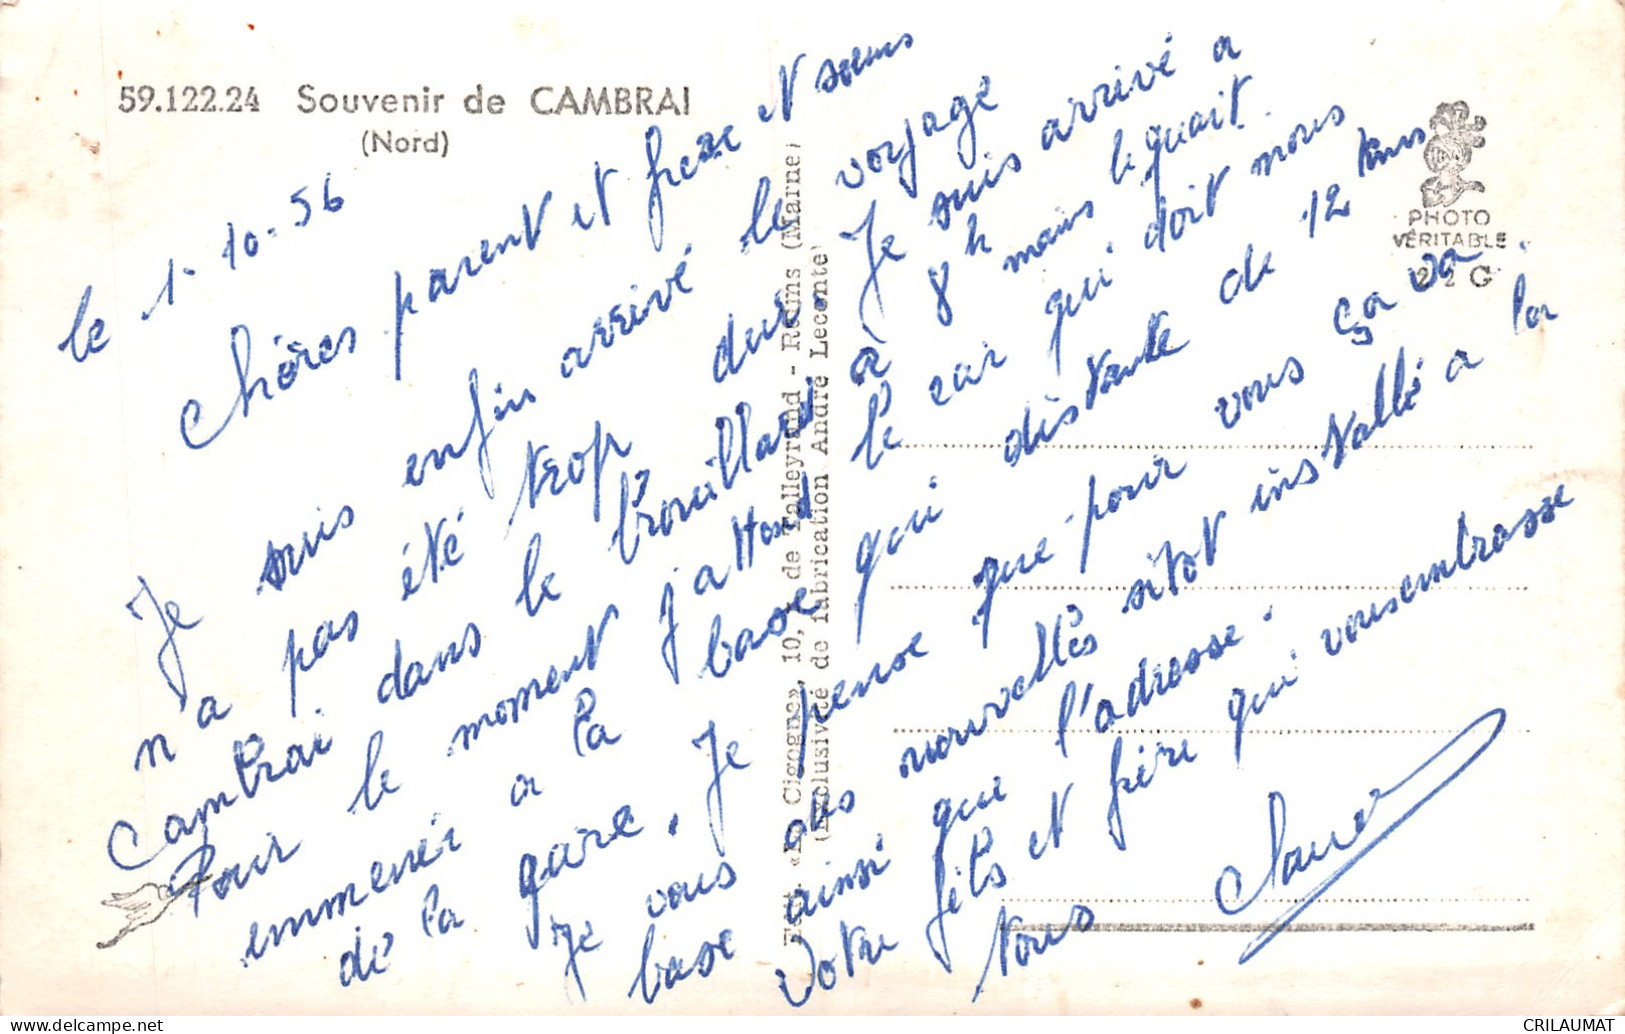 59.122.24 Souvenir de CAMBRAI
(Nord)
le 1-10-56
Chères parent et frere N soeurs
Je suis enfin arrivé le voyage
n'a pas été trop dur. Je suis arrivé a
Cambrai dans le brouillard a 8h mains le quart.
Pour le moment j'attend le car qui doit nous
emmener a la base qui distante de 12 kms
de la gare. Je pense que pour vous ça va.
Je vous des nouvelles sitot installé a la
base ainsi que l'adresse.
Votre fils et frère qui vous embrasse
tous
Est. «La Cigogne», 10, de Talleyrand - Reims (Marne)
(Exclusivité de fabrication André Leconte)
PHOTO
VÉRITABLE
2 2 G
CRILAUMAT